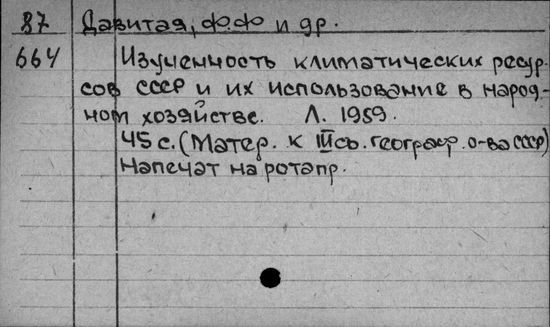 87 Давитая, Ф.Ф и др.
664 Изученность климатических ресур-
сов СССР и их использование в народ-
ном хозяйстве. Л. 1959.
45 с. (Матер. к III съ. географ. о-ва СССР)
Напечат на ротапр.